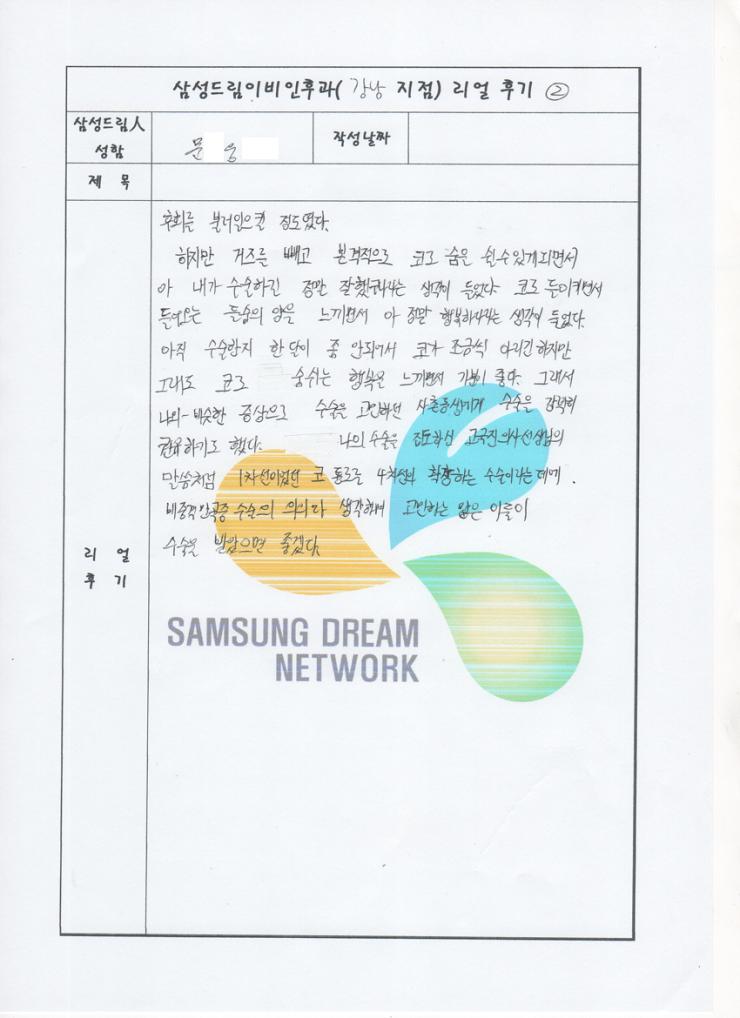 삼성드림이비인후과( 강남 지점) 리얼 후기 ②
삼성드림人 성함
문 웅
작성날짜
제 목
후회를 불러일으킬 정도였다.
하지만 거즈를 빼고 본격적으로 코로 숨을 쉴수있게되면서
아 내가 수술하긴 정말 잘했구나라는 생각이 들었다. 코로 들이키면서
들어오는 들숨의 양을 느끼면서 아 정말 행복하다라는 생각이 들었다.
아직 수술한지 한달이 좀 안되어서 코가 조금씩 아리긴하지만
그래도 코로 숨쉬는 행복을 느끼면서 기분이 좋다. 그래서
나와 비슷한 증상으로 수술을 고민하던 사촌동생에게 수술을 강력히
권유하기도 했다. 나의 수술을 집도하신 고국진의사선생님의
말씀처럼 1차선이었던 코 통로를 4차선으로 확장하는 수술이라는데에.
비중격만곡증 수술의 의의라 생각하며 고민하는 많은 이들이
수술을 받았으면 좋겠다.
리 얼
후 기
SAMSUNG DREAM
NETWORK